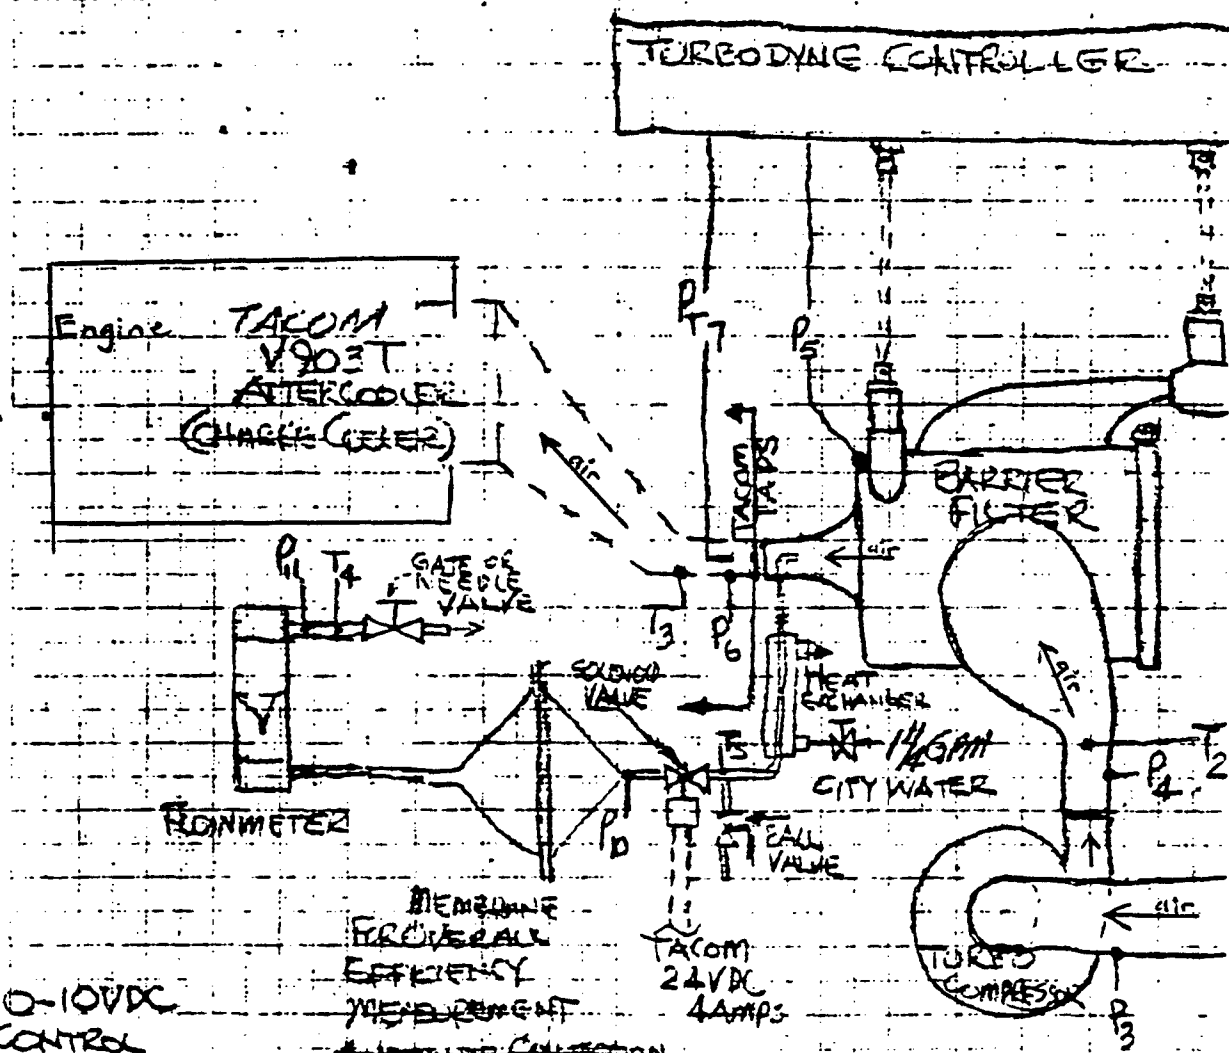 TURBODYNE CONTROLLER
Engine
TACOM
V903T
AFTERCOOLER
(CHARGE COOLER)
air
P
T 7
P5
TACOM
TAPS
BARRIER
FILTER
air
P11
T4
GATE OR
NEEDLE
VALVE
T3
P6
SOLENOID
VALVE
HEAT
EXCHANGER
air
T5
1 1/4 GPM
CITY WATER
T2
P4
FLOWMETER
P10
BALL
VALVE
air
MEMBRANE
FOR OVERALL
EFFICIENCY
MEASUREMENT
TACOM
24VDC
4 AMPS
TURBO
COMPRESSOR
P3
0-10VDC
CONTROL
COLLECTION